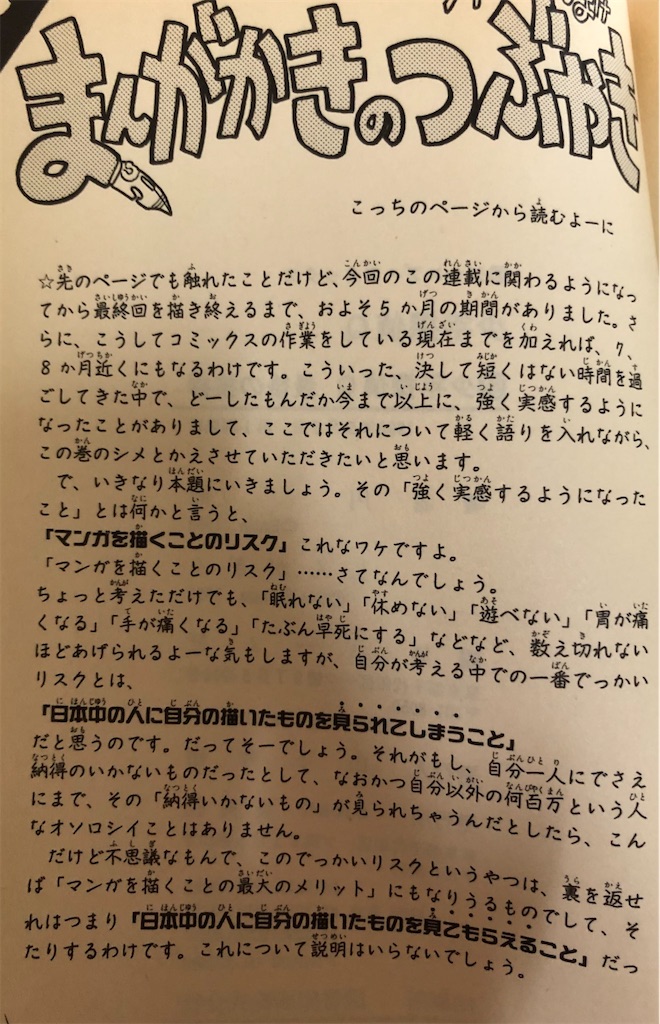 まんがかきのつぶやき
こっちのページから読むよーに
☆先のページでも触れたことだけど、今回のこの連載に関わるようになっ
てから最終回を描き終えるまで、およそ5か月の期間がありました。さ
らに、こうしてコミックスの作業をしている現在までを加えれば、7、
8か月近くにもなるわけです。こういった、決して短くはない時間を過
ごしてきた中で、どーしたもんだか今まで以上に、強く実感するように
なったことがありまして、ここではそれについて軽く語りを入れながら、
この巻のシメとかえさせていただきたいと思います。
で、いきなり本題にいきましょう。その「強く実感するようになった
こと」とは何かと言うと、
「マンガを描くことのリスク」これなワケですよ。
「マンガを描くことのリスク」……さてなんでしょう。
ちょっと考えただけでも、「眠れない」「休めない」「遊べない」「胃が痛
くなる」「手が痛くなる」「たぶん早死にする」などなど、数え切れない
ほどあげられるよーな気もしますが、自分が考える中での一番でっかい
リスクとは、
「日本中の人に自分の描いたものを見られてしまうこと」
だと思うのです。だってそーでしょう。それがもし、自分一人にでさえ
納得のいかないものだったとして、なおかつ自分以外の何百万という人
にまで、その「納得いかないもの」が見られちゃうんだとしたら、こん
なオソロシイことはありません。
だけど不思議なもんで、このでっかいリスクというやつは、裏を返せ
ば「マンガを描くことの最大のメリット」にもなりうるものでして、そ
れはつまり「日本中の人に自分の描いたものを見てもらえること」だっ
たりするわけです。これについて説明はいらないでしょう。